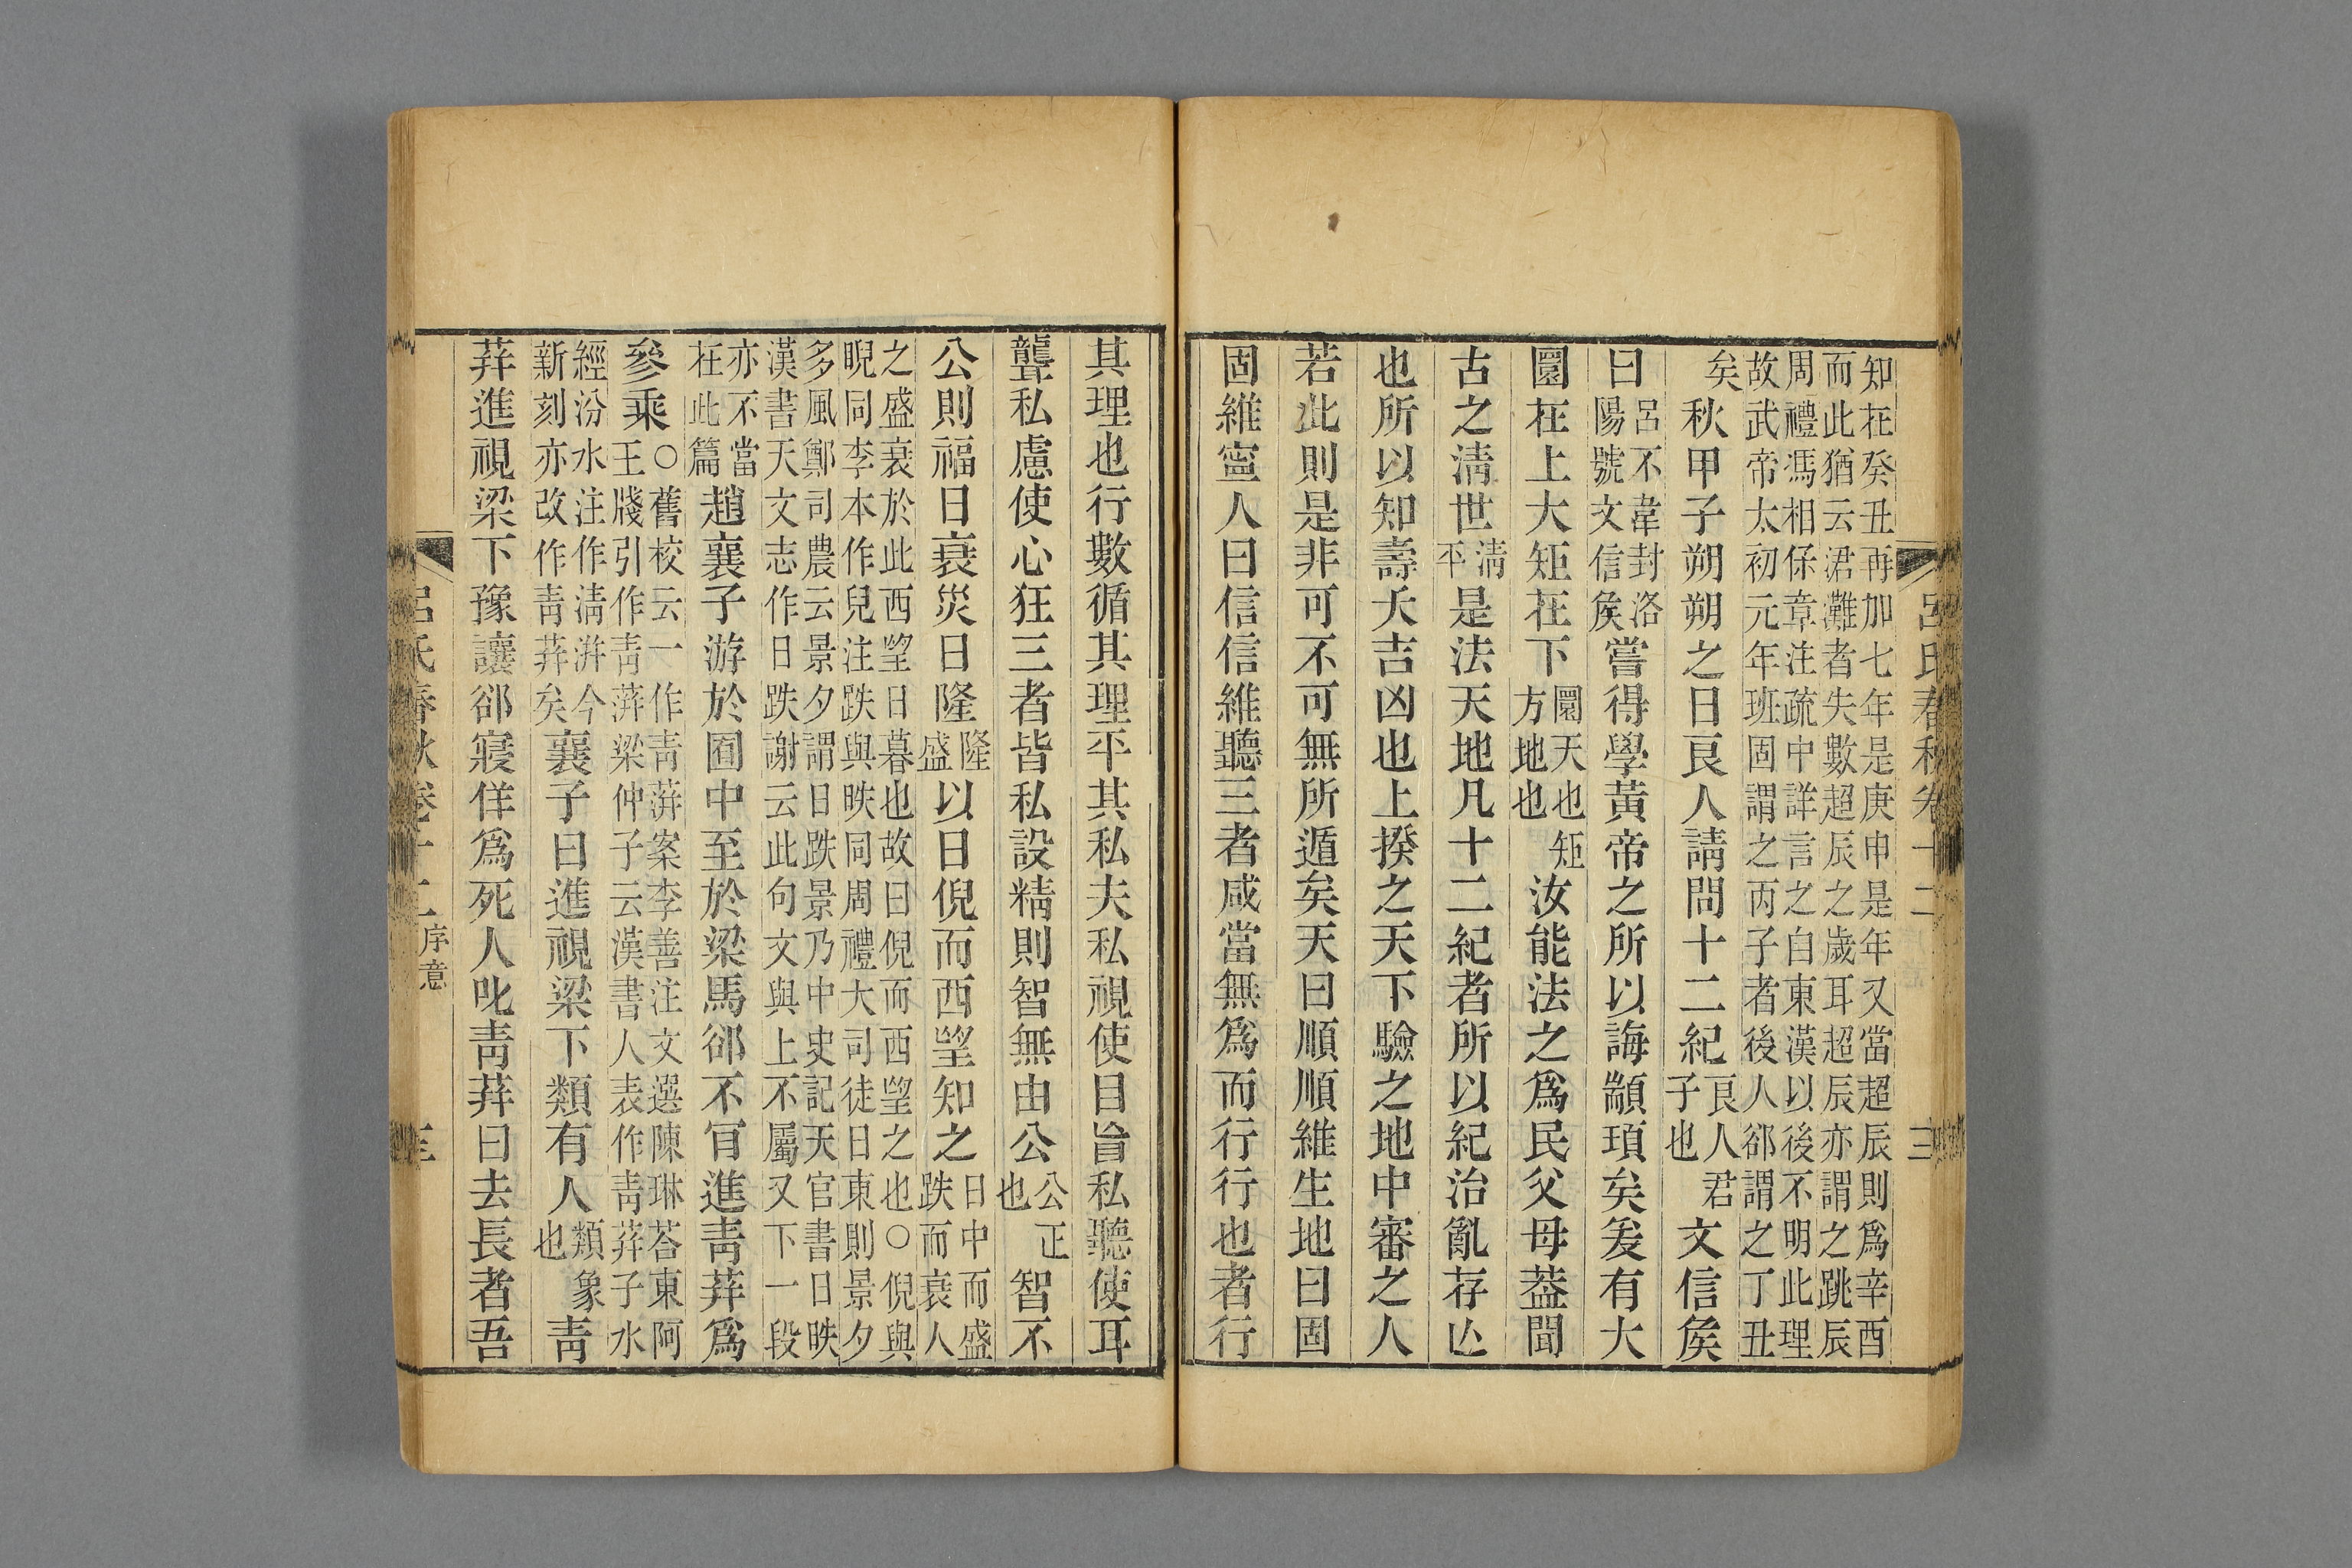 知在癸丑再加七年是庚申是年又當超辰則爲辛酉
而此猶云涒灘者失數超辰之歲耳超辰亦謂之跳辰
周禮馮相保章注疏中詳言之自東漢以後不明此理
故武帝太初元年班固謂之丙子者後人郤謂之丁丑
矣秋甲子朔朔之日良人請問十二紀良人君子也文信矦
曰呂不韋封洛陽號文信矦嘗得學黃帝之所以誨顓頊矣爰有大
圜在上大矩在下圜天也矩方地也汝能法之爲民父母葢聞
古之淸世淸平是法天地凡十二紀者所以紀治亂存亾
也所以知壽夭吉凶也上揆之天下驗之地中審之人
若此則是非可不可無所遁矣天曰順順維生地曰固
固維寍人曰信信維聽三者咸當無爲而行行也者行
呂氏春秋卷十二 三
其理也行數循其理平其私夫私視使目盲私聽使耳
聾私慮使心狂三者皆私設精則智無由公公正也智不
公則福日衰災日隆隆盛以日倪而西望知之日中而盛跌而衰人
之盛衰於此西望日暮也故曰倪而西望之也○倪與
睨同李本作兒注跌與昳同周禮大司徒日東則景夕
多風鄭司農云景夕謂日跌景乃中史記天官書日昳
漢書天文志作日跌謝云此句文與上不屬又下一段
亦不當在此篇趙襄子游於囿中至於梁馬郤不肎進靑荓爲
參乘○舊校云一作靑蓱案李善注文選陳琳荅東阿王牋引作靑蓱梁仲子云漢書人表作靑荓子水
經汾水注作淸洴今新刻亦改作靑荓矣襄子曰進視梁下類有人類象也靑
荓進視梁下豫讓郤寢佯爲死人叱靑荓曰去長者吾
呂氏春秋卷十二 序意 三